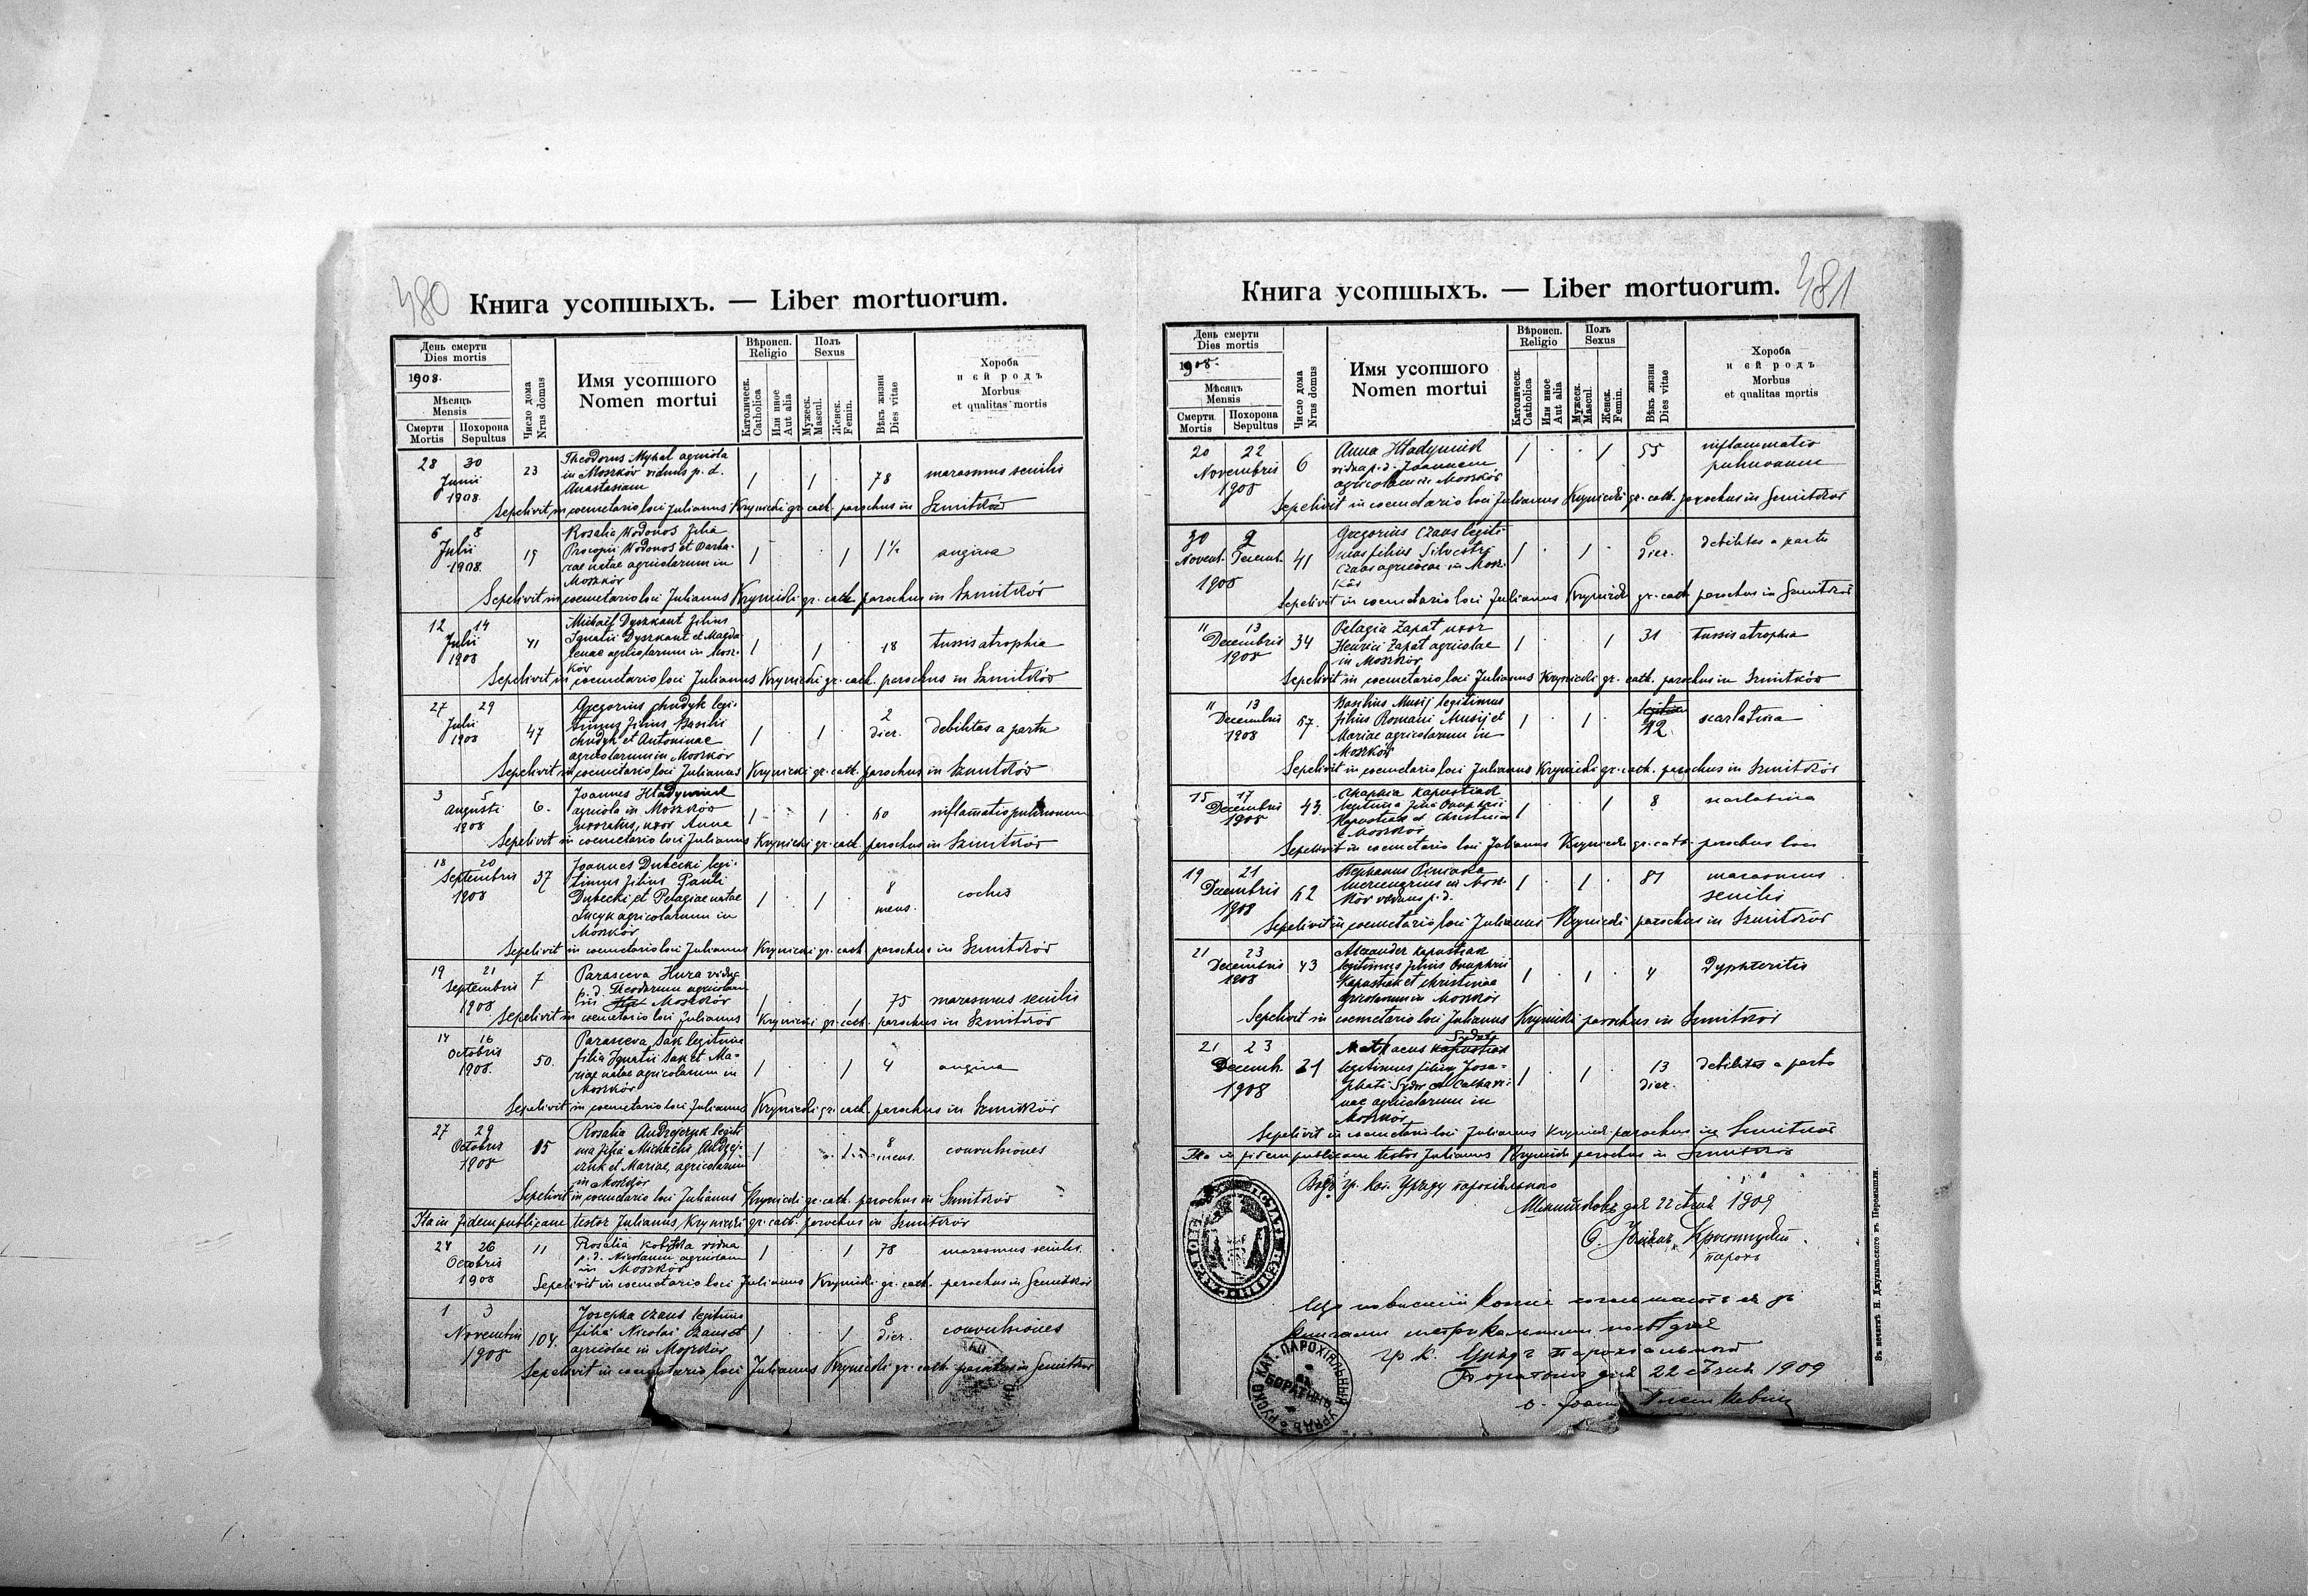 480
Книга усопшыхъ. — Liber mortuorum.
День смерти
Dies mortis
1908.
Мѣсяць
Mensis
Смерти
Mortis
Похорона
Sepultus
Число дома
Nrus domus
Имя усопшого
Nomen mortui
Вѣроисп.
Religio
Католическ.
Catholica
Или иное
Aut alia
Полъ
Sexus
Мужеск.
Mascul.
Женск.
Femin.
Вѣкъ жизни
Dies vitae
Хороба
и єй родъ
Morbus
et qualitas mortis
28 30 Junii 1908. 23
Theodorus Mykal agricola
in Moszków viduus p. d.
Anastasiam
1 1 78 marasmus senilis
Sepelivit in coemetario loci Julianus Krynicki gr. cath. parochus in Szmitków
6 8 Julii 1908. 19
Rosalia Wodonos filia
Procopii Wodonos et Barba-
rae natae agricolarum in
Moszków
1 1 1½ angina
Sepelivit in coemetario loci Julianus Krynicki gr. cath. parochus in Szmitków
12 14 Julii 1908 41
Michael Dyszkant filius
Ignatii Dyszkant et Magda-
lenae agricolarum in Mosz-
ków
1 1 18 tussis atrophia
Sepelivit in coemetario loci Julianus Krynicki gr. cath. parochus in Szmitków
27 29 Julii 1908 47
Gregorius Chudyk legi-
timus filius Basilii
Chudyk et Antoninae
agricolarum in Moszków
1 1 2 dier. debilitas a partu
Sepelivit in coemetario loci Julianus Krynicki gr. cath. parochus in Szmitków
3 5 Augusti 1908 6.
Joannes Hładyniuk
agricola in Moszków
uxoratus, uxor Anna
1 1 60 inflamatio pulmonum
Sepelivit in coemetario loci Julianus Krynicki gr. cath. parochus in Szmitków
18 20 Septembris 1908 37
Joannes Dubecki legi-
timus filius Pauli
Dubecki et Pelagiae natae
Łucyk agricolarum in
Moszków
1 1 8 mens.
Sepelivit in coemetario loci Julianus Krynicki gr. cath. parochus in Szmitków
19 21 Septembris 1908 7
Parasceva Hura vidua
p. d. Theodorum agricolam
in Moszków
1 1 75 marasmus senilis
Sepelivit in coemetario loci Julianus Krynicki gr. cath. parochus in Szmitków
14 16 Octobris 1908. 50.
Parasceva Sak legitima
filia Ignatii Sak et Ma-
riae natae agricolarum in
Moszków
1 1 4 angina
Sepelivit in coemetario loci Julianus Krynicki gr. cath. parochus in Szmitków
27 29 Octobris 1908 15
Rosalia Andrejczuk legiti-
ma filia Michaelis Andrej-
czuk et Mariae, agricolarum
in Moszków
1 1 8 mens. convulsiones
Sepelivit in coemetario loci Julianus Krynicki gr. cath. parochus in Szmitków
Ita in fidem publicam testor Julianus Krynicki gr. cath. parochus in Szmitków
24 26 Octobris 1908 11
Rosalia vidua
p. d. Nicolaum agricolam
in Moszków
1 1 78 marasmus senilis.
Sepelivit in coemetario loci Julianus Krynicki gr. cath. parochus in Szmitków
1 3 Novembris 1908 104.
Josepha Czaus legitima
filia Nicolai Czaus
agricolae in Moszków
1 1 8 dier. convulsiones
Sepelivit in coemetario loci Julianus Krynicki gr. cath. parochus in Szmitków
481
Книга усопшыхъ. — Liber mortuorum.
День смерти
Dies mortis
1908.
Мѣсяць
Mensis
Смерти
Mortis
Похорона
Sepultus
Число дома
Nrus domus
Имя усопшого
Nomen mortui
Вѣроисп.
Religio
Католическ.
Catholica
Или иное
Aut alia
Полъ
Sexus
Мужеск.
Mascul.
Женск.
Femin.
Вѣкъ жизни
Dies vitae
Хороба
и єй родъ
Morbus
et qualitas mortis
20 22 Novembris 1908 6
Anna Hładyniuk
vidua p. d. Joannem
agricolam in Moszków
1 1 55 inflammatio
pulmonum
Sepelivit in coemetario loci Julianus Krynicki gr. cath. parochus in Szmitków
30 Novemb. 2 Decemb. 1908 41
Gregorius Czaus legiti-
mus filius Silvestri
Czaus agricolae in Mosz-
ków
1 1 6 dier. debilitas a partu
Sepelivit in coemetario loci Julianus Krynicki gr. cath. parochus in Szmitków
11 13 Decembris 1908 34
Pelagia Zapat uxor
Henrici Zapat agricolae
in Moszków
1 1 31 tussis atrophia
Sepelivit in coemetario loci Julianus Krynicki gr. cath. parochus in Szmitków
11 13 Decembris 1908 57.
Basilius Musij legitimus
filius Romani Musij et
Mariae agricolarum in
Moszków
1 1 12. scarlatina
Sepelivit in coemetario loci Julianus Krynicki gr. cath. parochus in Szmitków
15 17 Decembris 1908 43
Ahaphia Kapustiak
legitima filia Onuphrii
Kapustiak et Christinae
Moszków
1 1 8 scarlatina
Sepelivit in coemetario loci Julianus Krynicki gr. cath. parochus loci
19 21 Decembris 1908 62
Stephanus
mercenarius in Mosz-
ków viduus p. d.
1 1 81 marasmus
senilis
Sepelivit in coemetario loci Julianus Krynicki parochus in Szmitków
21 23 Decembris 1908 43
Alexander Kapustiak
legitimus filius Onuphrii
Kapustiak et Christinae
agricolarum in Moszków
1 1 4 Dyphteritis
Sepelivit in coemetario loci Julianus Krynicki parochus in Szmitków
21 23 Decemb. 1908 21
Sydor
Kapustiak
legitimus filius Josa-
phati Sydor et Cathari-
nae agricolarum in
Moszków
1 1 13 dier. debilitas a partu
Sepelivit in coemetario loci Julianus Krynicki parochus in Szmitków
Ita in fidem publicam testor Julianus Krynicki parochus in Szmitków
гр. кат. Уряду парохіяльного
дня 22 1909
парохъ
гр. к. Урядъ парохіальный
дня 22 1909
РУСКО КАТ. ПАРОХІЯЛЬНЫЙ УРЯДЪ
БОРАТИНѢ
Въ печатнѣ И. Джулыньского въ Перемышли.